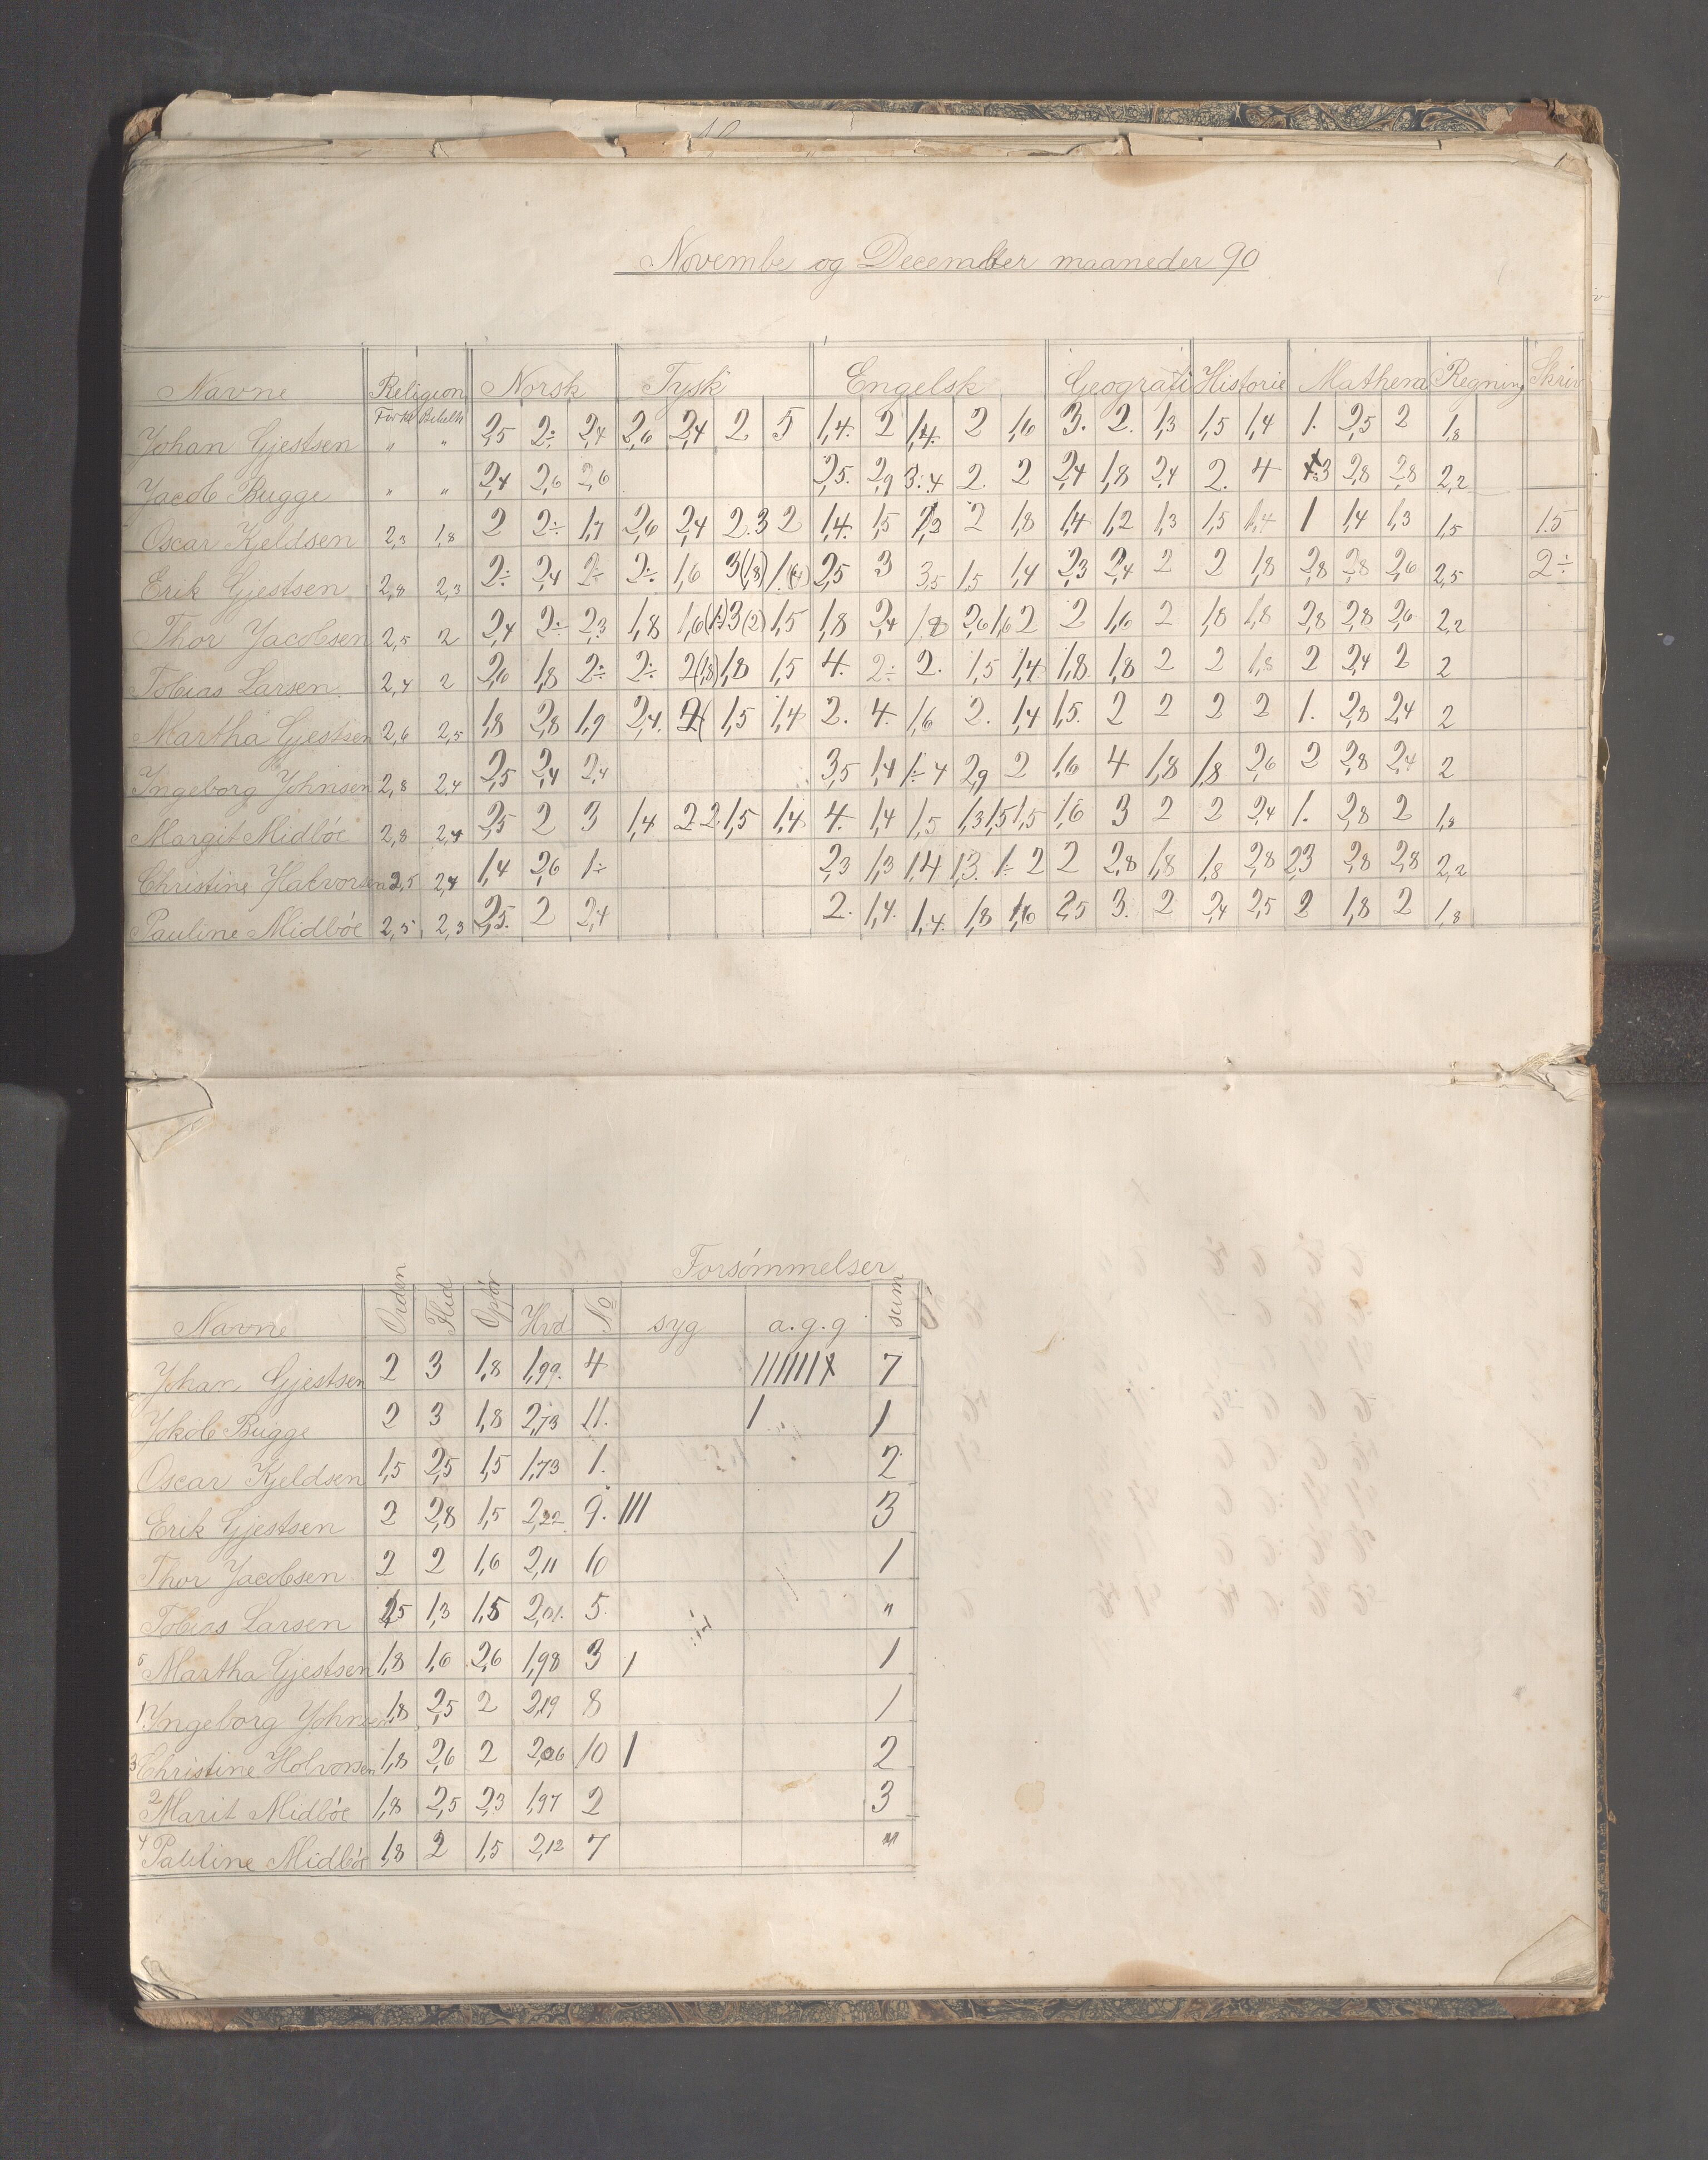 Novembe og December maaneder 90
Navne Religion Norsk Tysk Engelsk Geografi Historie Mathema Regning Skriv
Johan Gjestsen " " 2,5 2÷ 2,4 2,6 2,4 2 5 1,4. 2 1,4. 2 1,6 3. 2. 1,3 1,5 1,4 1. 2,5 2 1,8
Jacob Bugge " " 2,4 2,6 2,6 2,5. 2,9 3.4 2. 2 2,4 1,8 2,4 2. 4 2,8 2,8 2,2
Oscar Kjeldsen 2,3 1,8 2 2÷ 1,7 2,6 2,4 2.3 2 1,4. 1,5 2 1,8 1,4 1,2 1,3 1,5 1,4 1 1,4 1,3 1,5 1.5
Erik Gjestsen 2,8 2,3 2÷ 2,4 2÷ 2÷ 1,6 3(1,8) 2,5 3 3,5 1,5 1,4 2,3 2,4 2 2 1,8 2,8 2,8 2,6 2,5 2÷
Thor Jacobsen 2,5 2 2,4 2÷ 2,3 1,8 1,6 3(2) 1,5 1,8 2,4 1,8 2,6 1,6 2 2 1,6 2 1,8 1,8 2,8 2,8 2,6 2,2
Tobias Larsen. 2,4 2 2,6 1,8 2÷ 2÷ 2(1,8) 1,8 1,5 4. 2÷ 2. 1,5 1,4 1,8 1,8 2 2 1,8 2 2,4 2 2
Martha Gjestsen 2,6 2,5 1,8 2,8 1,9 2,4. 1,5 1,4 2. 4. 1,6 2. 1,4 1,5. 2 2 2 2 1. 2,8 2,4 2
Ingeborg Johnsen 2,8 2,4 2,5 2,4 2,4 3,5 1,4 1÷4 2,9 2 1,6 4 1,8 1,8 2,6 2 2,8 2,4 2
Margit Midböe 2,8 2,4 2,5 2 3 1,4 2 2 1,5 1,4 4. 1,4 1,5 1,3 1,5 1,5 1,6 3 2 2 2,4 1. 2,8 2 1,8
Christine Halvorsen 2,5 2,4 1,4 2,6 1÷ 2,3 1,3 1,4 1,3. 1÷ 2 2 2,8 1,8 1,8 2,8 2,3 2,8 2,8 2,2
Pauline Midböe 2,5 2,3 2,5. 2 2,4 2. 1,4. 1,4. 1,8 1,6 2,5 3. 2 2,4 2,5 2 1,8 2 1,8
Forsömmelser
Navne Orden Flid Opför Hvd No syg a.g.g sum
Johan Gjestsen 2 3 1,8 1,99. 4 7
Jokob Bugge 2 3 1,8 2,73 11. 1 1
Oscar Kjeldsen 1,5 2,5 1,5 1,73 1. 2
Erik Gjestsen 2 2,8 1,5 2,22 9. III 3
Thor Jacobsen 2 2 1,6 2,11 10 1
Tobias Larsen 1,3 1,5 2,01. 5. "
5 Martha Gjestsen 1,8 1,6 2,6 1,98 3 1 1
1 Ingeborg Johnsen 1,8 2,5 2 2,19 8 1
3 Christine Holvorsen 1,8 2,6 2 2,06 10 1 2
2 Marit Midböe 1,8 2,5 2,3 1,97 2 3
4 Pauline Midböe 1,8 2 1,5 2,12 7 "